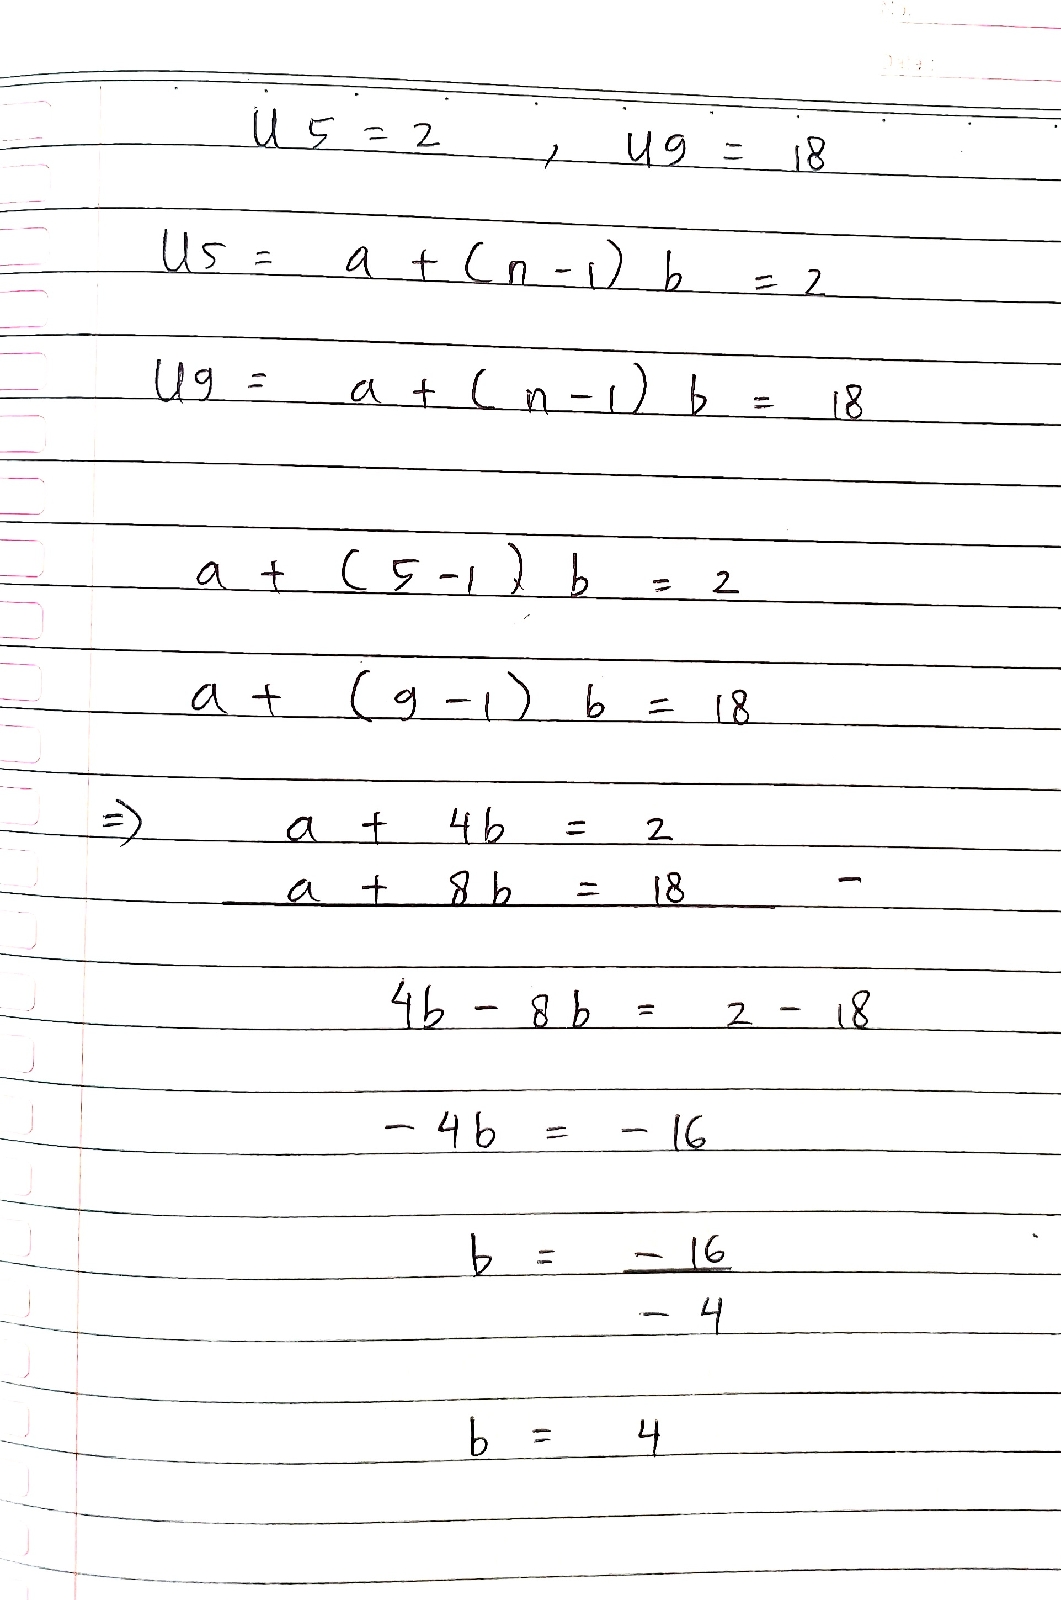 U5 = 2 , U9 = 18
U5 = a + (n-1) b = 2
U9 = a + (n-1) b = 18
a + (5-1) b = 2
a + (9-1) b = 18
=> a + 4b = 2
a + 8b = 18 -
4b - 8b = 2 - 18
- 4b = - 16
b = - 16
- 4
b = 4